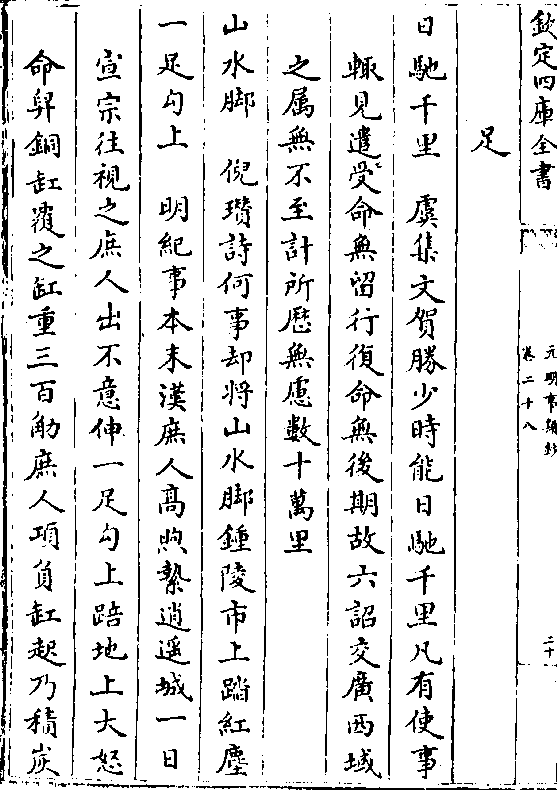 欽定四庫全書
元明事類鈔
卷二十八
二十
足
日馳千里　虞集文賀勝少時能日馳千里凡有使事
輙見遣受命無留行復命無後期故六詔交廣西域
之属無不至計所歴無慮數十萬里
山水脚　倪瓚詩何事却將山水脚鍾陵市上踏紅塵
一足勾上　明紀事本末漢庶人髙煦縶逍遥城一日
宣宗往視之庶人出不意伸一足勾上踣地上大怒
命舁銅缸覆之缸重三百觔庶人項負缸起乃積炭